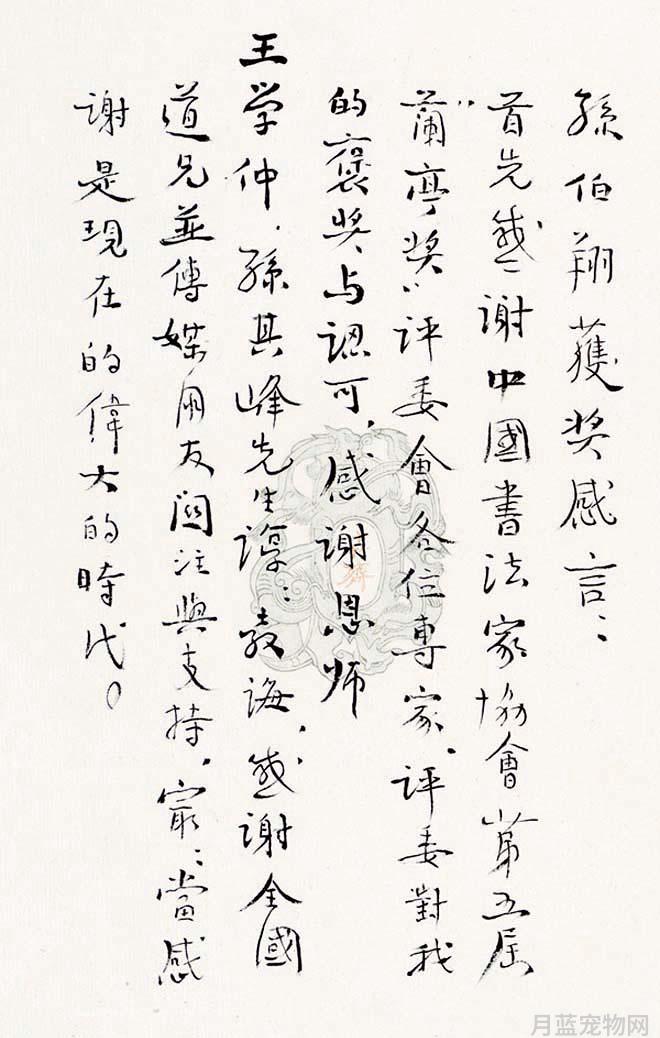 孫伯翔獲奖感言：
首先感謝中國書法家協會第五届
“蘭亭奖”評委會各位專家、評委對我
的褒奖与認可，感謝恩师
王学仲、孫其峰先生諄：教誨，感謝全國
道兄並傳媒朋友關注與支持，最：當感
謝是現在的偉大的時代。
月蓝宠物网